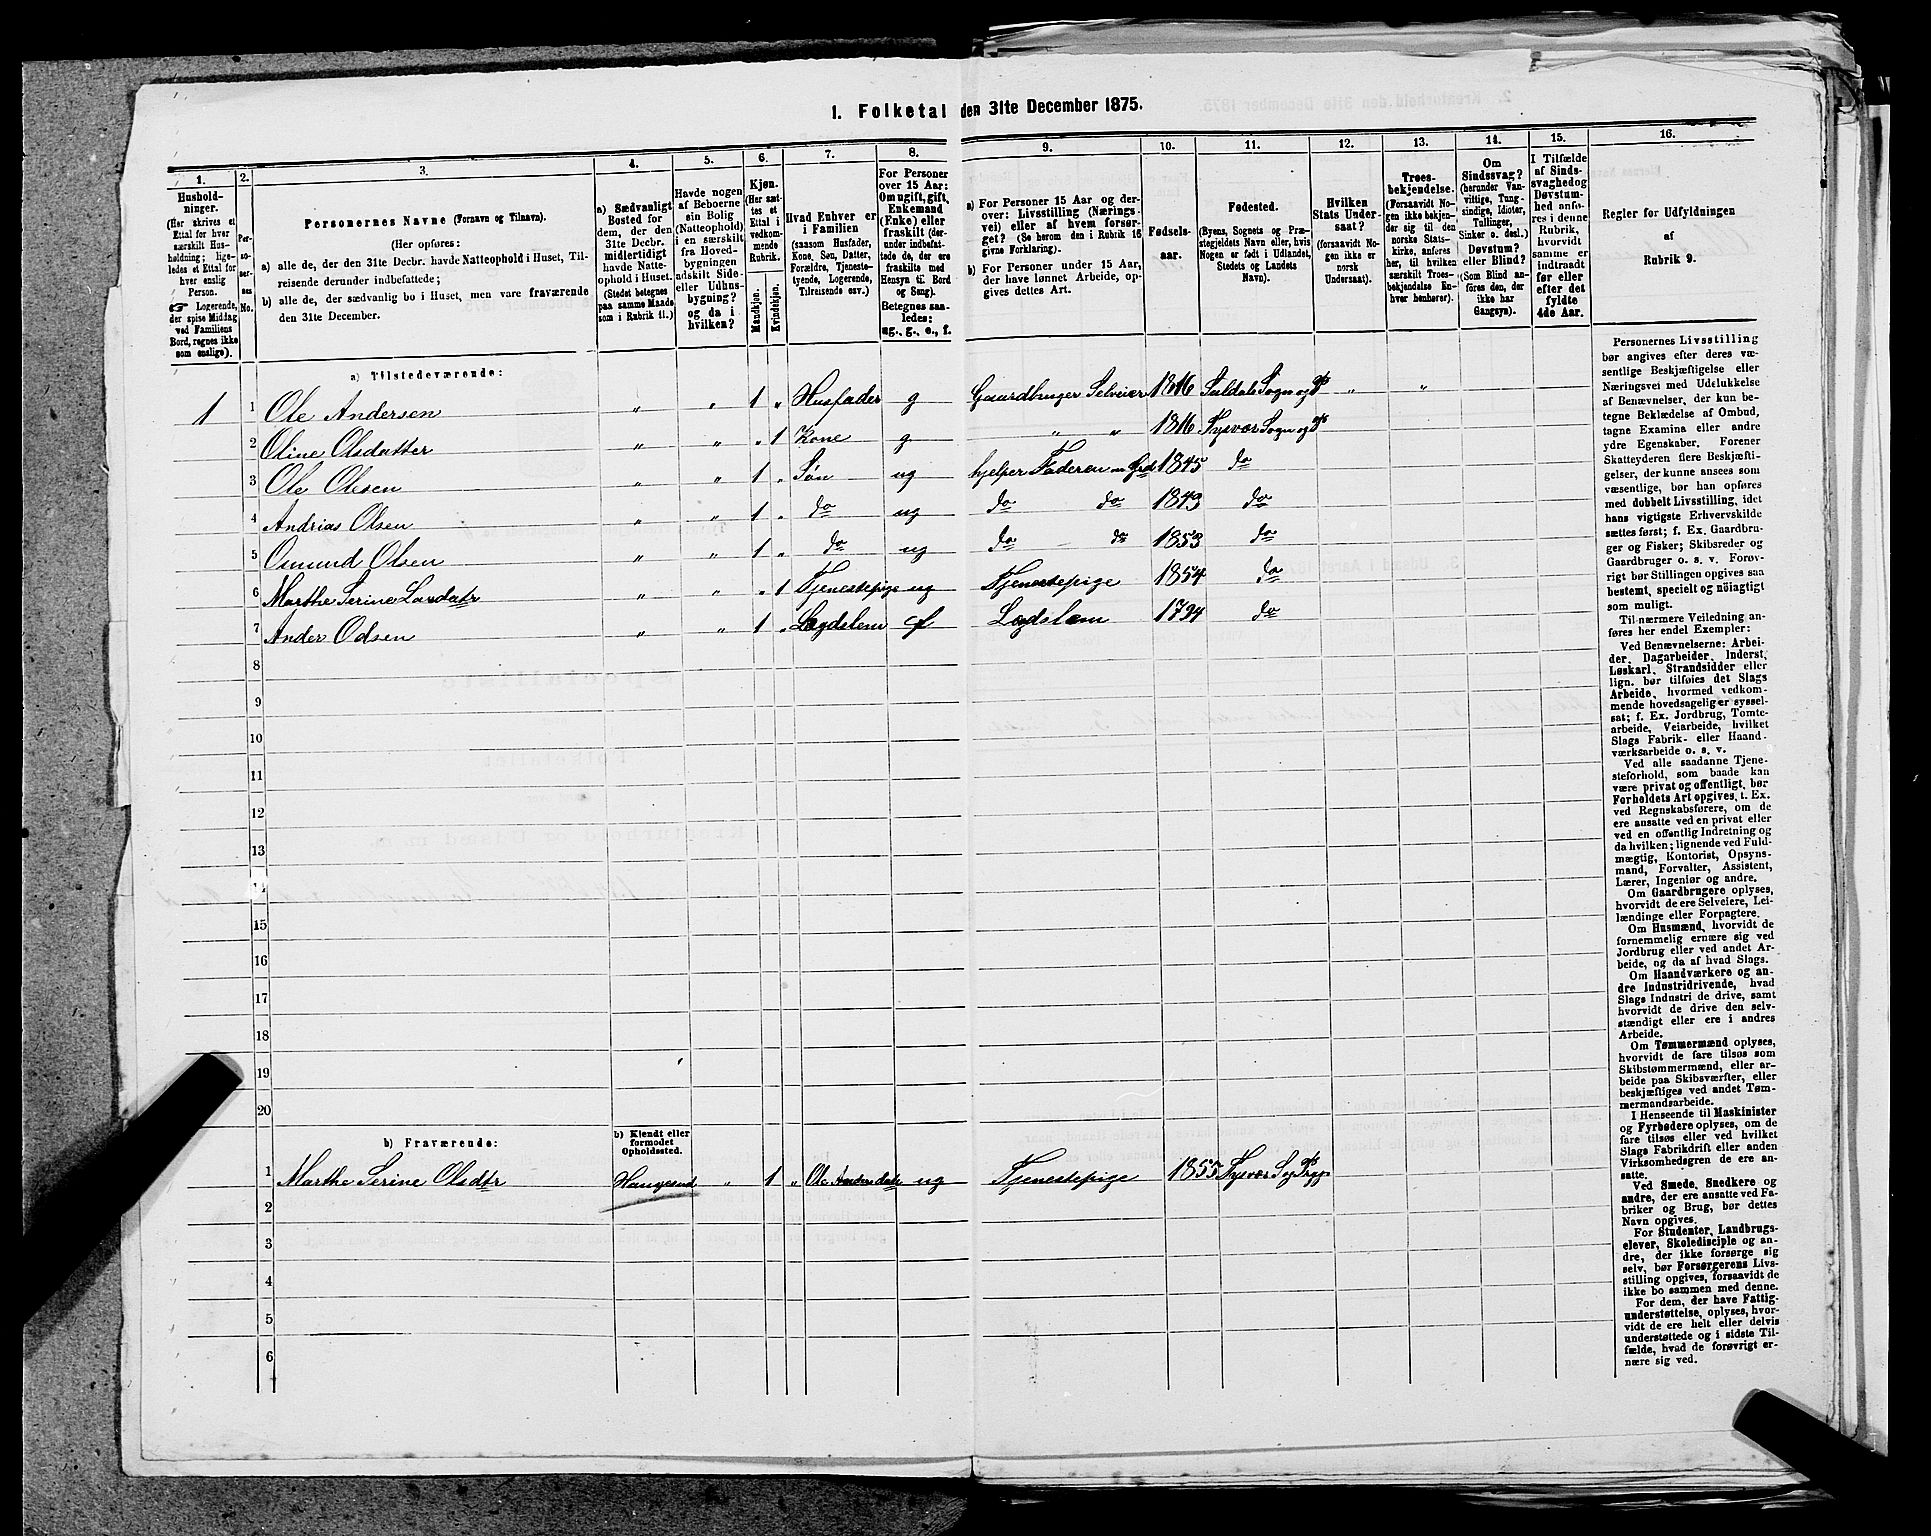 1. Folketal den 31te December 1875.
1. 2. 3. 4. 5. 6. 7. 8. 9. 10. 11. 12. 13. 14. 15. 16.
Husholdninger. (Her skrives et Ettal for hver særskilt Husholdning; ligeledes et Ettal for hver enslig Person. Logerende, der spise Middag ved Familiens Bord, regnes ikke som enslige).
Personernes No.
Personernes Navne (Fornavn og Tilnavn).
(Her opføres:
a) alle de, der den 31te Decbr. havde Natteophold i Huset, Tilreisende derunder indbefattede;
b) alle de, der sædvanlig bo i Huset, men vare fraværende den 31te December.
a) Sædvanligt Bosted for dem, der den 31te Decbr. midlertidigt havde Natteophold i Huset. (Stedet betegnes paa samme Maade som i Rubrik 11.)
Havde nogen af Beboerne sin Bolig (Natteophold) i en særskilt fra Hovedbygningen adskilt Side- eller Udhusbygning? og da i hvilken?
Kjøn. (Her sættes et Ettal i vedkommende Rubrik.
Mandkjøn. Kvindekjøn.
Hvad Enhver er i Familien (saasom Husfader, Kone, Søn, Datter, Forældre, Tjenestetyende, Logerende, Tilreisende osv.)
For Personer over 15 Aar: Om ugift, gift, Enkemand (Enke) eller fraskilt (derunder indbefattede de, der ere fraskilte med Hensyn til Bord og Seng). Betegnes saaledes: ug., g., e., f.
a) For Personer 15 Aar og derover: Livsstilling (Næringsvei) eller af hvem forsørget? (Se herom den i Rubrik 16 givne Forklaring).
b) For Personer under 15 Aar, der have lønnet Arbeide, opgives dettes Art.
Fødselsaar.
Fødested. (Byens, Sognets og Præstegjeldets Navn eller, hvis Nogen er født i Udlandet, Stedets og Landets Navn).
Hvilken Stats Undersaat? (forsaavidt Nogen ikke er norsk Undersaat).
Troesbekjendelse. (Forsaavidt Nogen ikke bekjender sig til den norske Statskirke, anføres her, til hvilken særskilt Troesbekjendelse Enhver henhører).
Om Sindssvag? (herunder Vanvittige, Tungsindige, Idioter, Tullinger, Sinker o. desl.) Døvstum? eller Blind? (Som Blind anføres den, der ikke har Gangsyn).
I Tilfælde af Sindssvaghed og Døvstumhed anføres i denne Rubrik, hvorvidt samme er indtraadt før eller efter det fyldte 4de Aar.
Regler for Udfyldningen af Rubrik 9.
a) Tilstedeværende:
1 1 Ole Andersen " " 1 " Husfader g Gaardbruger Selveier 1816 Suldals Sogn og " "
2 Oline Olsdatter " " " 1 Kone g " " 1816 Tysvær Sogn og
3 Ole Olesen " " 1 " Søn ug hjelper Faderen 1845 do
4 Andrias Olsen " " 1 " do ug do do 1843 do
5 Osmund Olsen " " 1 " do ug do do 1853 do
6 Marthe Serine " " " 1 Tjenestepige ug Tjenestepige 1854 do
7 Ander Odsen " " 1 " Lægdslem Lægdslem 1794 do
8
9
10
11
12
13
14
15
16
17
18
19
20
b) Fraværende:
b) Kjendt eller formodet Opholdssted.
1 Marthe Serine Olsdtr Haugesund " 1 " Ole ug Tjenestepige 1855 Tysvær
2
3
4
5
6
Personernes Livsstilling
bør angives efter deres væ-
sentlige Beskjæftigelse eller
Næringsvei med Udelukkelse
af Benævnelser, der kun be-
tegne Beklædelse af Ombud,
tagne Examina eller andre
ydre Egenskaber. Forener
Skatteyderen flere Beskjæfti-
gelser, der kunne ansees som
væsentlige, bør han opføres
med dobbelt Livsstilling, idet
hans vigtigste Erhvervskilde
sættes først; f. Ex. Gaardbru-
ger og Fisker; Skibsreder og
Gaardbruger o. s. v. Forøv-
rigt bør Stillingen opgives saa
bestemt, specielt og nöiagtigt
som muligt.
Til nærmere Veiledning an-
føres her endel Exempler:
Ved Benævnelserne: Arbei-
der, Dagarbeider, Inderst,
Løskarl, Strandsidder eller
lign. bør tilføies det Slags
Arbeide, hvormed vedkom-
mende hovedsagelig er syssel-
sat; f. Ex. Jordbrug, Tomte-
arbeide, Veiarbeide, hvilket
Slags Fabrik- eller Haand-
værksarbeide o. s. v.
Ved alle saadanne Tjene-
steforhold, som baade kan
være privat og offentligt, bør
Forholdets Art opgives, t. Ex.
ved Regnskabsførere, om de
ere ansatte ved en privat eller
ved en offentlig Indretning og
da hvilken; lignende ved Fuld-
mægtig, Kontorist, Opsyns-
mand, Forvalter, Assistent,
Lærer, Ingeniør og andre.
Om Gaardbrugere oplyses,
hvorvidt de ere Selveiere, Lei-
lændinge eller Forpagtere.
Om Husmænd, hvorvidt de
fornemmelig ernære sig ved
Jordbrug eller ved andet Ar-
beide, og da af hvad Slags.
Om Haandværkere og an-
dre Industridrivende, hvad
Slags Industri de drive, samt
hvorvidt de drive den selv-
stændigt eller ere i andres
Arbeide.
Om Tømmermænd oplyses,
hvorvidt de fare tilsøs som
Skibstømmermænd, eller ar-
beide paa Skibsværfter, eller
beskjæftiges ved andet Tøm-
mermandsarbeide.
I Henseende til Maskinister
og Fyrbødere oplyses, om de
fare tilsøs eller ved hvilket
Slags Fabrikdrift eller anden
Virksomhedsgren de ere an-
satte.
Ved Smede, Snedkere og
andre, der ere ansatte ved Fa-
briker og Brug, bør dettes
Navn opgives.
For Studenter, Landbrugs-
elever, Skoledisciple og an-
dre, der ikke forsørge sig
selv, bør Forsørgerens Livs-
stilling opgives, forsaavidt de
ikke bo sammen med denne.
For dem, der have Fattig-
understøttelse, oplyses, hvor-
vidt de ere helt eller delvis
understøttede og i sidste Til-
fælde, hvad de forøvrigt er-
nære sig ved.